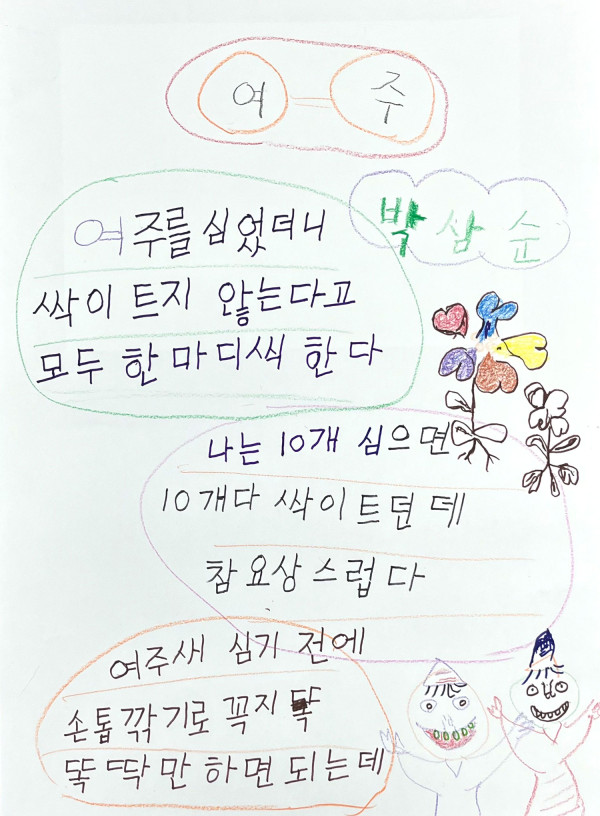 여 주
박삼순
여주를 심었더니
싹이 트지 않는다고
모두 한마디씩 한다
나는 10개 심으면
10개다 싹이트던데
참 요상스럽다
여주새 심기 전에
손톱깎기로 꼭지 뚝
뚝딱만 하면 되는데